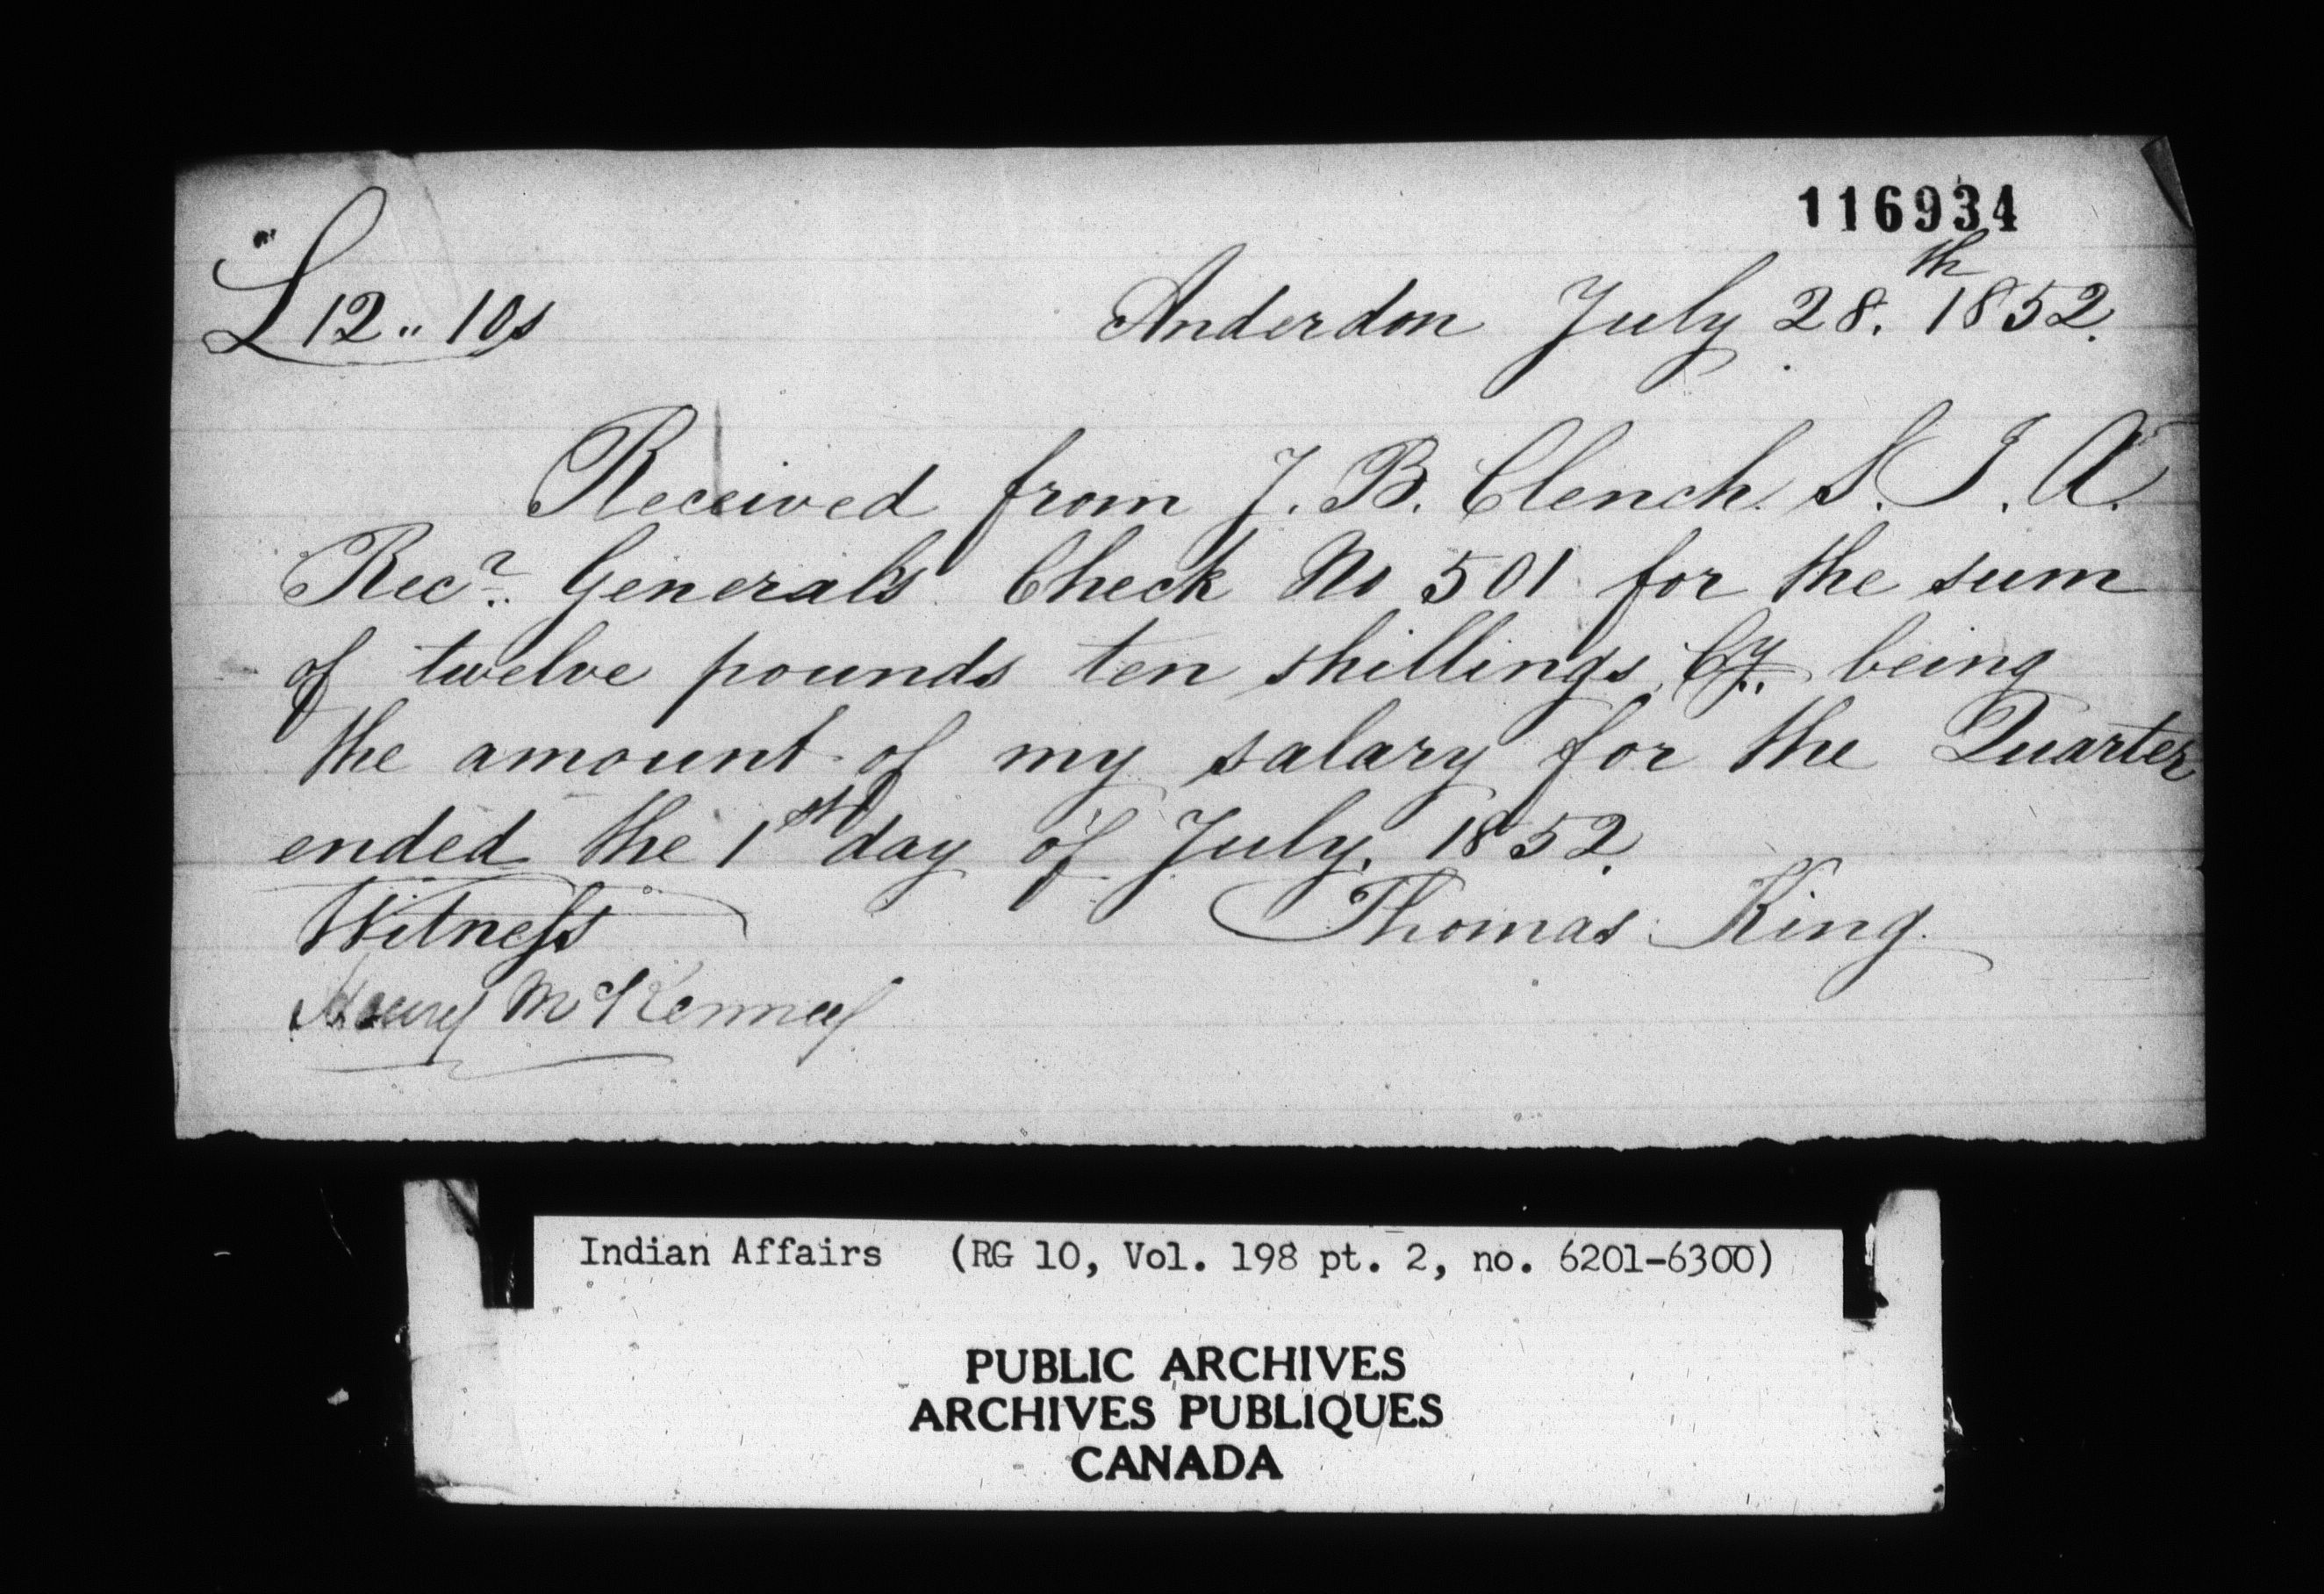 116934
£12 " 10s
Anderdon July 28.th 1852.
Received from J. B. Clench. S. I. A.
Recr. General's Check No 501 for the sum
of twelve pounds ten shillings Cy. being
the amount of my salary for the Quarter
ended the 1st day of July, 1852.
Witness
Thomas King
McKenney
Indian Affairs (RG 10, Vol. 198 pt. 2, no. 6201-6300)
PUBLIC ARCHIVES
ARCHIVES PUBLIQUES
CANADA